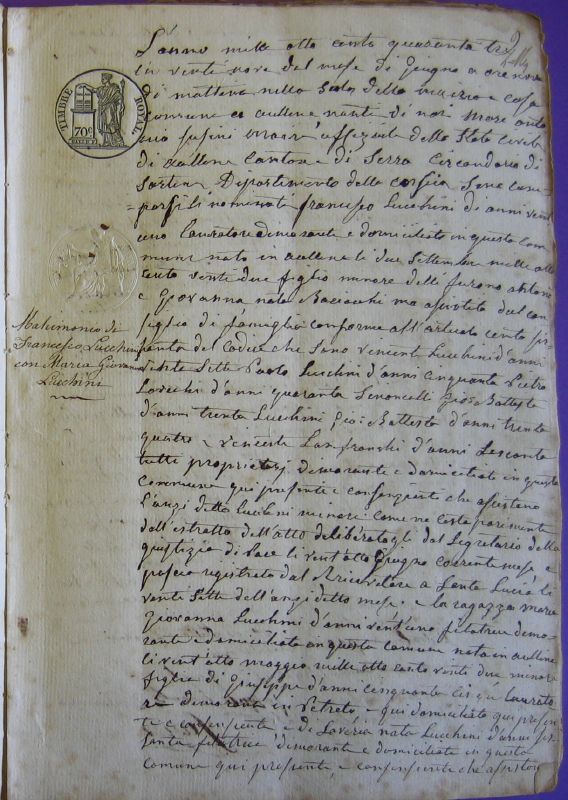 L'anno mille otto cento quaranta tre
li venti nove del mese di Giugno a ore nove
di mattina nella Sala della e casa
Comune d'aullene nanti di noi
Susini uffiziale dello Stato civile
di aullene Cantone di Serra Circondario di
Sartena Dipartimento della Corsica Sono com-
parsi li nominati Francesco Lucchini di anni vent'
uno lauratore dimorante e domiciliato in questa Com
mune nato in aullene li due Settembre mille otto
cento venti due figlio minore delli furono antonio
e Giovanna nata Baciocchi ma assistito dal con
siglio di famiglia conforme all'articolo cento ses
santa del codice che sono Vincenti Lucchini d'anni
venti Sette Paolo Lucchini d'anni cinquanta Pietro
d'anni quaranta Gioi Battesta
d'anni trenta Lucchini Gioi Battesta d'anni trenta
quatro e Vincente Lanfranchi d'anni sessanta
tutti proprietarj dimorante e domiciliati in questa
Commune qui presenti e consenzienti che assistono
l'anzi detto Lucchini minore come ne costa parimente
dell'estratto dell'atto deliberatogli dal Segretario della
giustizia di Pace li vent'otto Giugno corrente mese e
poscia registrato dal Ricevitore a Santa Lucia li
venti Sette dell'anzi detto mese. e la ragazza Maria
Giovanna Lucchini d'anni vent'uno filatrice dimo-
rante e domiciliata in questa comune nata in aullene
li vent'otto maggio mille otto cento venti due minore
figlia di Giuseppe d'anni cinquanta cinque laurato
re dimorante in Petreto e qui domiciliato qui presen
te e consenziente e di Saveria nata Lucchini d'anni ses
santa filatrice dimorante e domiciliata in questa
comune qui presente, e consenziente che assistono
TIMBRE ROYAL
70c
Matrimonio di
Francesco Lucchini
con Maria Giovanna
Lucchini